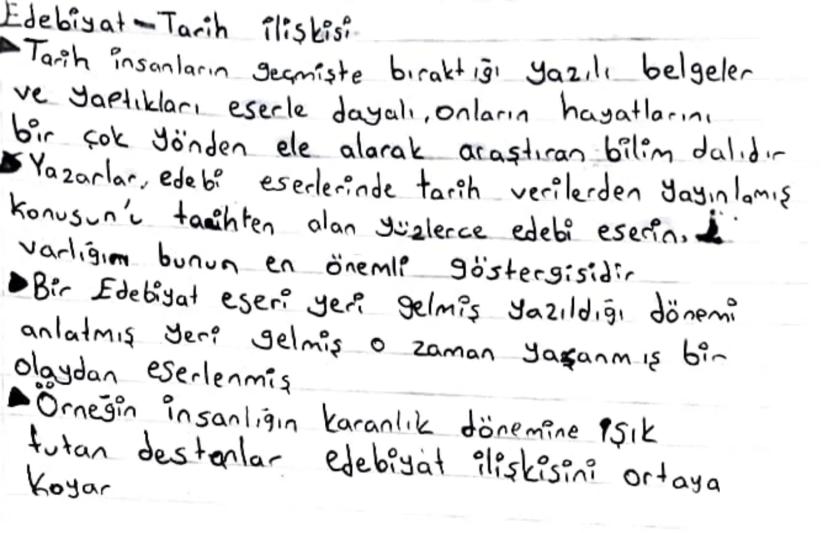 Edebiyat-Tarih ilişkisi
▶Tarih insanların geçmişte bıraktığı yazılı belgeler
ve yaptıkları eserle dayalı, onların hayatlarını
bir çok yönden ele alarak araştıran bilim dalıdır
▶Yazarlar, edebi eserlerinde tarih verilerden yayınlamış
konusun'u tarihten alan yüzlerce edebi eserin.
varlığım bunun en önemli göstergisidir
▶Bir Edebiyat eseri yeri gelmiş yazıldığı dönemi
anlatmış yeri gelmiş o zaman yaşanmış bir
olaydan eserlenmiş
▶Örneğin insanlığın karanlık dönemine ışık
tutan destanlar edebiyat ilişkisini ortaya
koyar